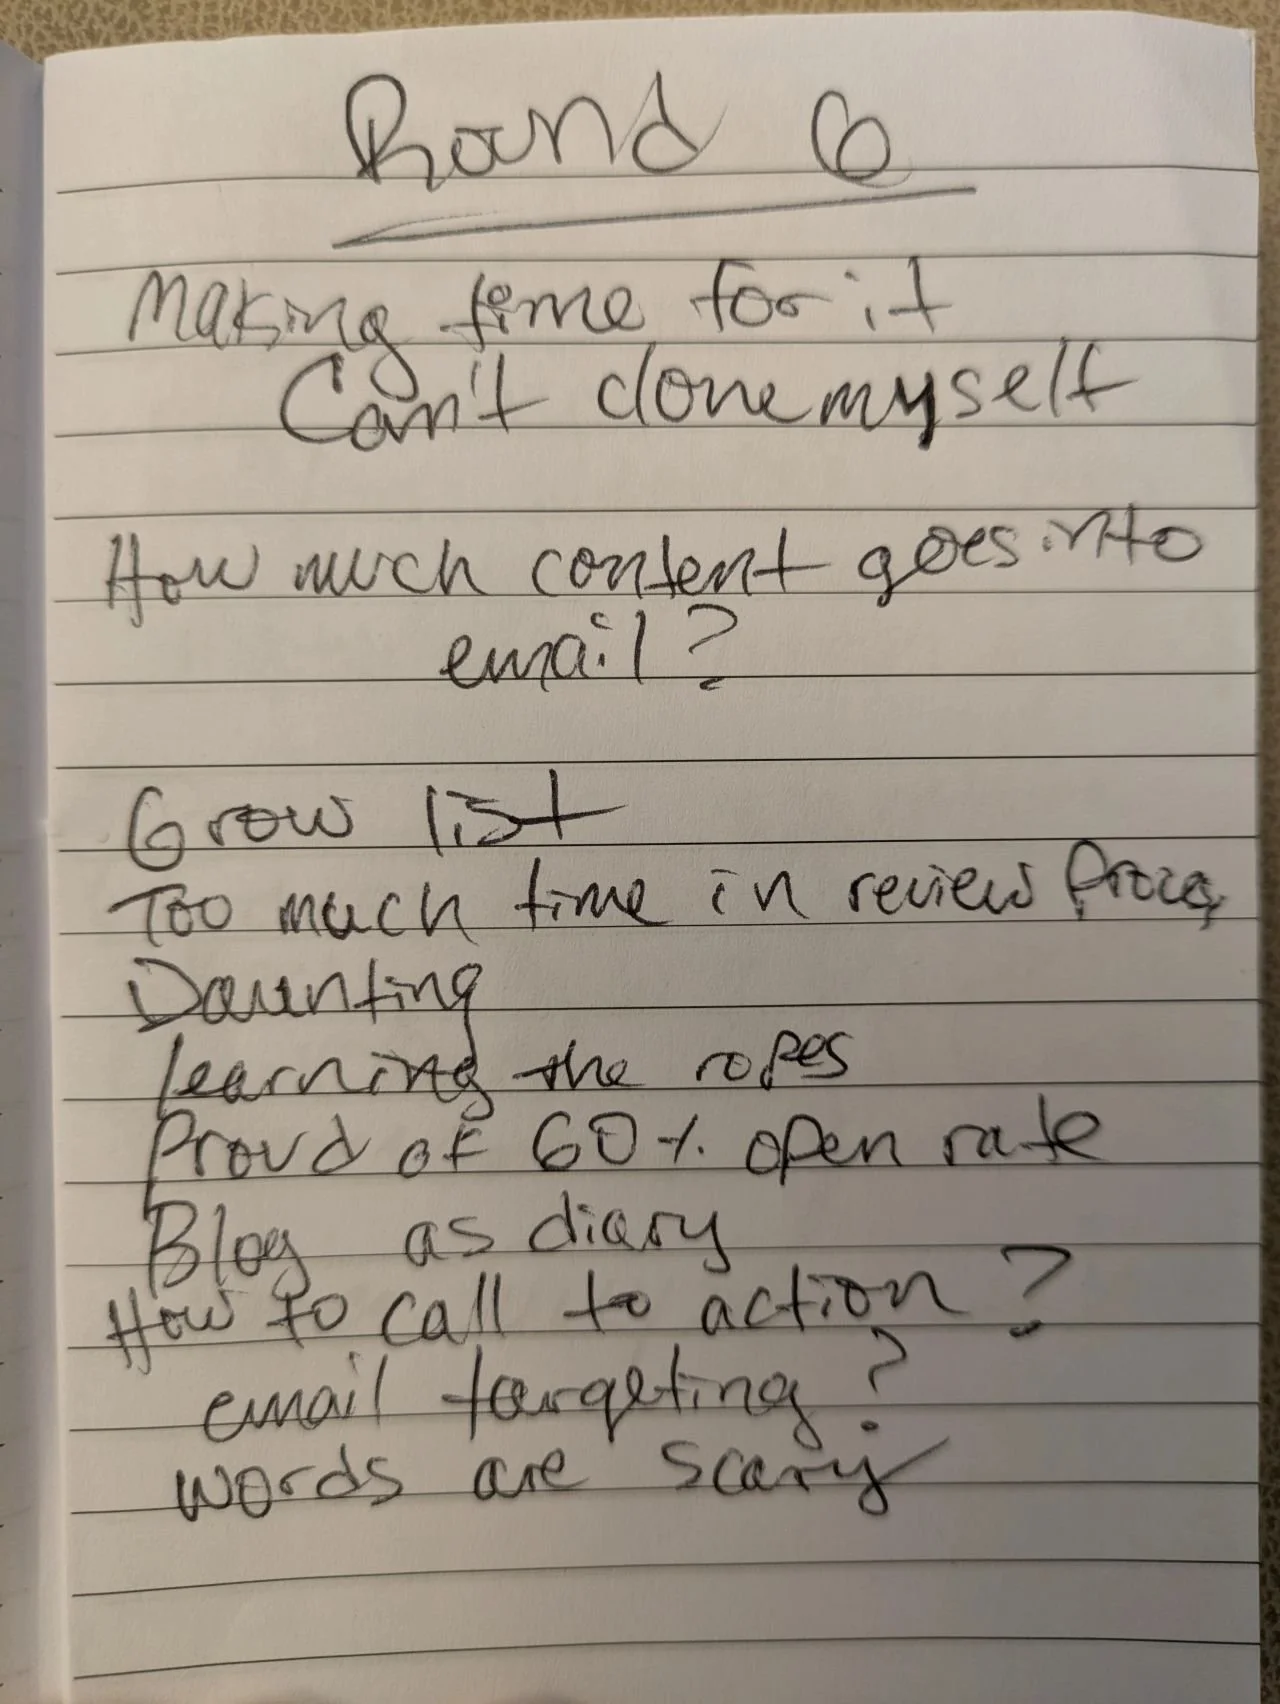 Round 6
Making time for it
Can't done myself
How much content goes into
email?
Grow list
Too much time in review Proces
Daunting
learning the ropes
Proud of 60% open rate
Blog as diary
How to call to action?
email targeting?
words are scary